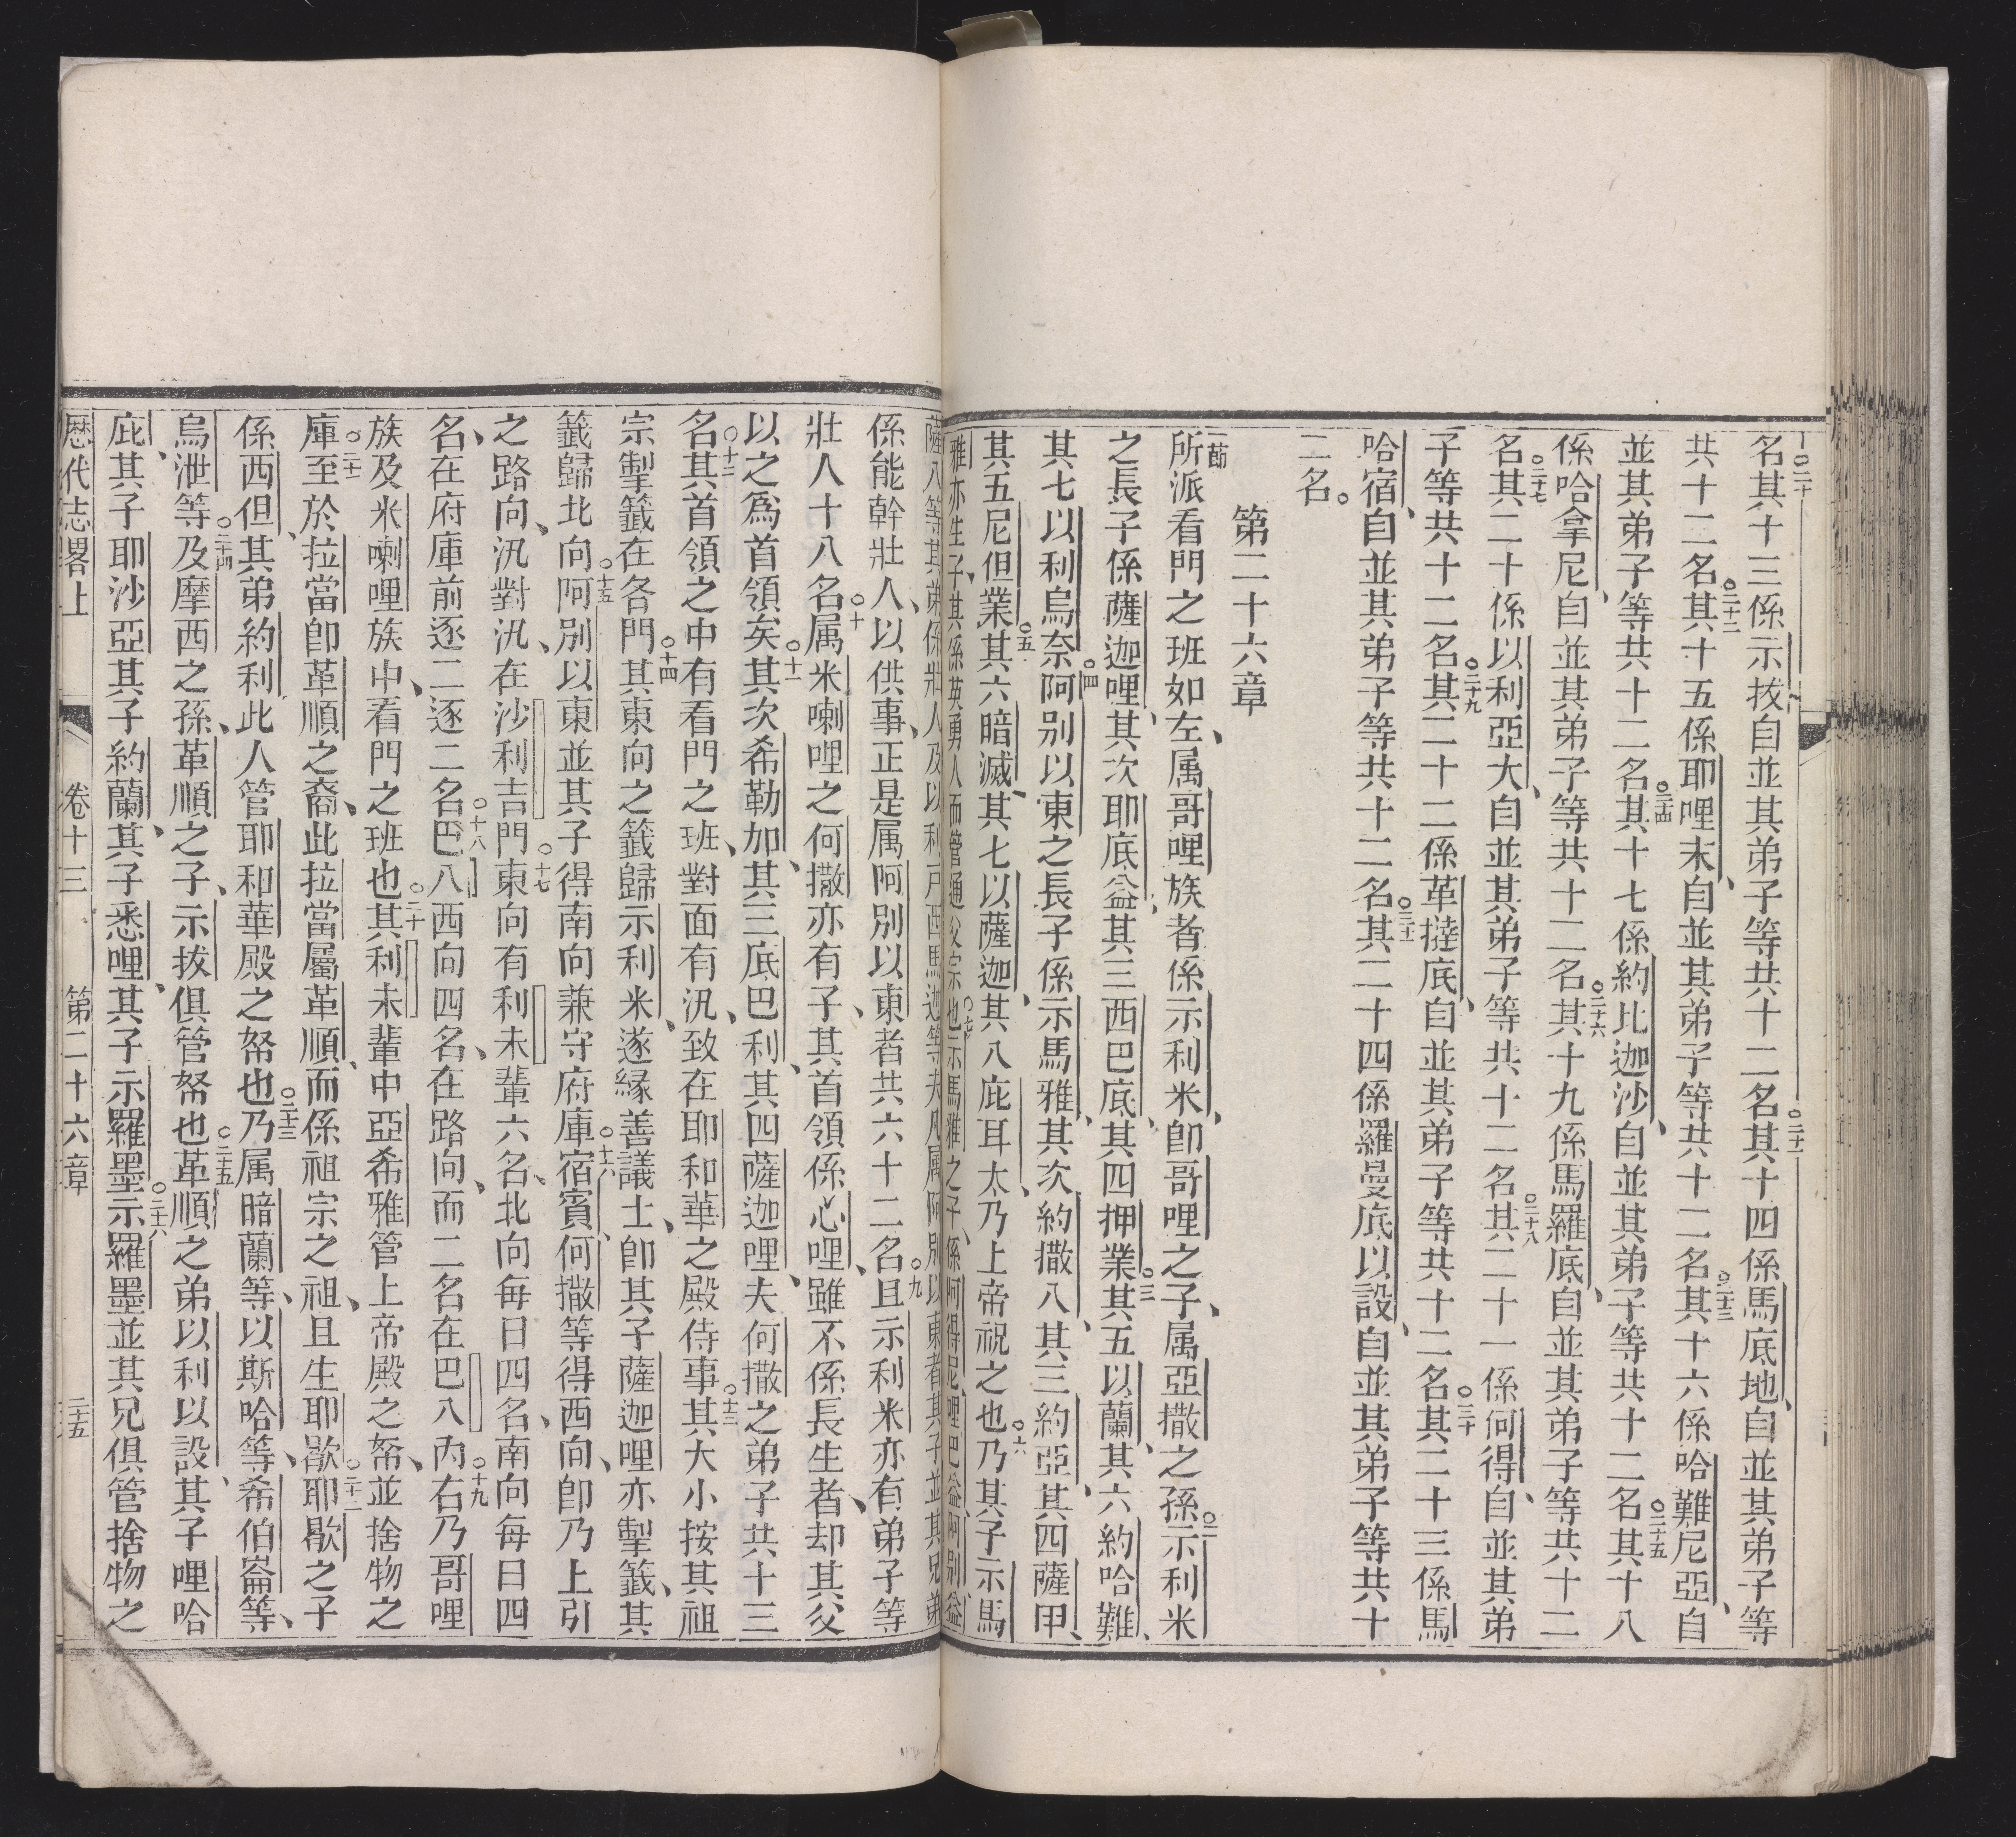 名其十三係示拔自並其弟子等共十二名○二十一其十四係馬底地自並其弟子等
共十二名○二十二其十五係耶哩末自並其弟子等共十二名○二十三其十六係哈難尼亞自
並其弟子等共十二名○二十四其十七係約比迦沙自並其弟子等共十二名○二十五其十八
係哈拿尼自並其弟子等共十二名○二十六其十九係馬羅底自並其弟子等共十二
名○二十七其二十係以利亞大自並其弟子等共十二名○二十八其二十一係何得自並其弟
子等共十二名○二十九其二十二係革撻底自並其弟子等共十二名○三十其二十三係馬
哈宿自並其弟子等共十二名○三十一其二十四係羅曼底以設自並其弟子等共十
二名。
第二十六章
一節所派看門之班如左、属哥哩族者係示利米、卽哥哩之子、属亞撒之孫○二示利米
之長子係薩迦哩、其次耶底益、其三西巴底、其四押業○三其五以蘭、其六約哈難、
其七以利烏奈○四阿別以東之長子係示馬雅、其次約撒八、其三約亞、其四薩甲、
其五尼但業○五其六暗滅、其七以薩迦、其八庇耳太、乃上帝祝之也○六乃其子示馬
雅亦生子、其係英勇人而管通父宗也○七示馬雅之子、係阿得尼哩巴益阿別益
薩八等其弟係壯人及以利戶西馬迦等夫凡属阿別以東者其子並其兄弟
係能幹壯人、以供事、正是属阿別以東者共六十二名○九且示利米亦有弟子等
壯人十八名○十属米喇哩之何撒亦有子、其首領係心哩、雖不係長生者、却其父
以之爲首領矣○十一其次希勒加、其三底巴利、其四薩迦哩、夫何撒之弟子共十三
名○十二其首領之中有看門之班、對面有汛、致在耶和華之殿侍事○十三其大小按其祖
宗掣籤在各門○十四其東向之籤歸示利米、遂緣善議士、卽其子薩迦哩亦掣籤、其
籤歸北向○十五阿別以東並其子得南向兼守府庫○十六宿賓、何撒等得西向、卽乃上引
之路向、汛對汛、在沙利吉門○十七東向有利未輩六名、北向每日四名、南向每日四
名、在府庫前逐二逐二名○十八巴八西向四名、在路向、而二名在巴八內○十九右乃哥哩
族及米喇哩族中、看門之班也○二十其利未輩中亞希雅管上帝殿之帑、並捨物之
庫○二十一至於拉當卽革順之裔、此拉當屬革順、而係祖宗之祖、且生耶歇○二十二耶歇之子
係西但、其弟約利此人管耶和華殿之帑也○二十三乃属暗蘭等、以斯哈等、希伯崙等、
烏泄等○二十四及摩西之孫、革順之子、示拔俱管帑也○二十五革順之弟以利以設、其子哩哈
庇、其子耶沙亞其子約蘭、其子悉哩、其子示羅墨○二十六示羅墨並其兄俱管捨物之
歷代志畧上 卷十三 第二十六章 二十五